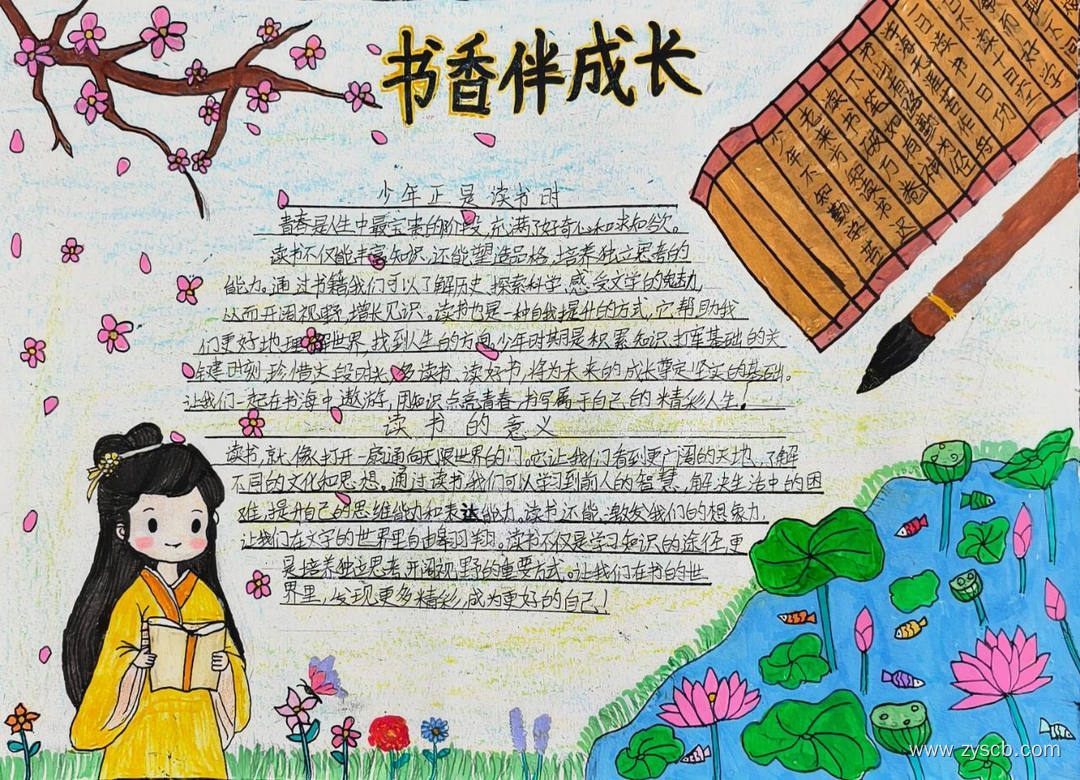 书香伴成长
少年不知勤学苦
老来方知读书迟
读书破万卷
下笔如有神
书山有路勤为径
学海无涯苦作舟
一日读书一日功
一日不读十日空
而好学
少年正是读书时
青春是人生中最宝贵的阶段,充满了好奇心和求知欲。
读书不仅能丰富知识,还能塑造品格,培养独立思考的
能力。通过书籍我们可以了解历史,探索科学,感受文学的魅力,
从而开阔视野,增长见识。读书也是一种自我提升的方式,它帮助我
们更好地理解世界,找到人生的方向,少年时期是积累知识,打牢基础的关
键时刻,珍惜这段时光,多读书、读好书,将为未来的成长奠定坚实的基础。
让我们一起在书海中遨游,用知识点亮青春,书写属于自己的精彩人生!
读书的意义
读书,就像打开一扇通向无限世界的门。它让我们看到更广阔的天地,了解
不同的文化和思想。通过读书我们可以学习到前人的智慧,解决生活中的困
难,提升自己的思维能力和表达能力。读书还能激发我们的想象力,
让我们在文字的世界里自由翱翔。读书不仅是学习知识的途径,更
是培养独立思考,开阔视野的重要方式。让我们在书的世
界里,发现更多精彩,成为更好的自己!
www.zyscb.com